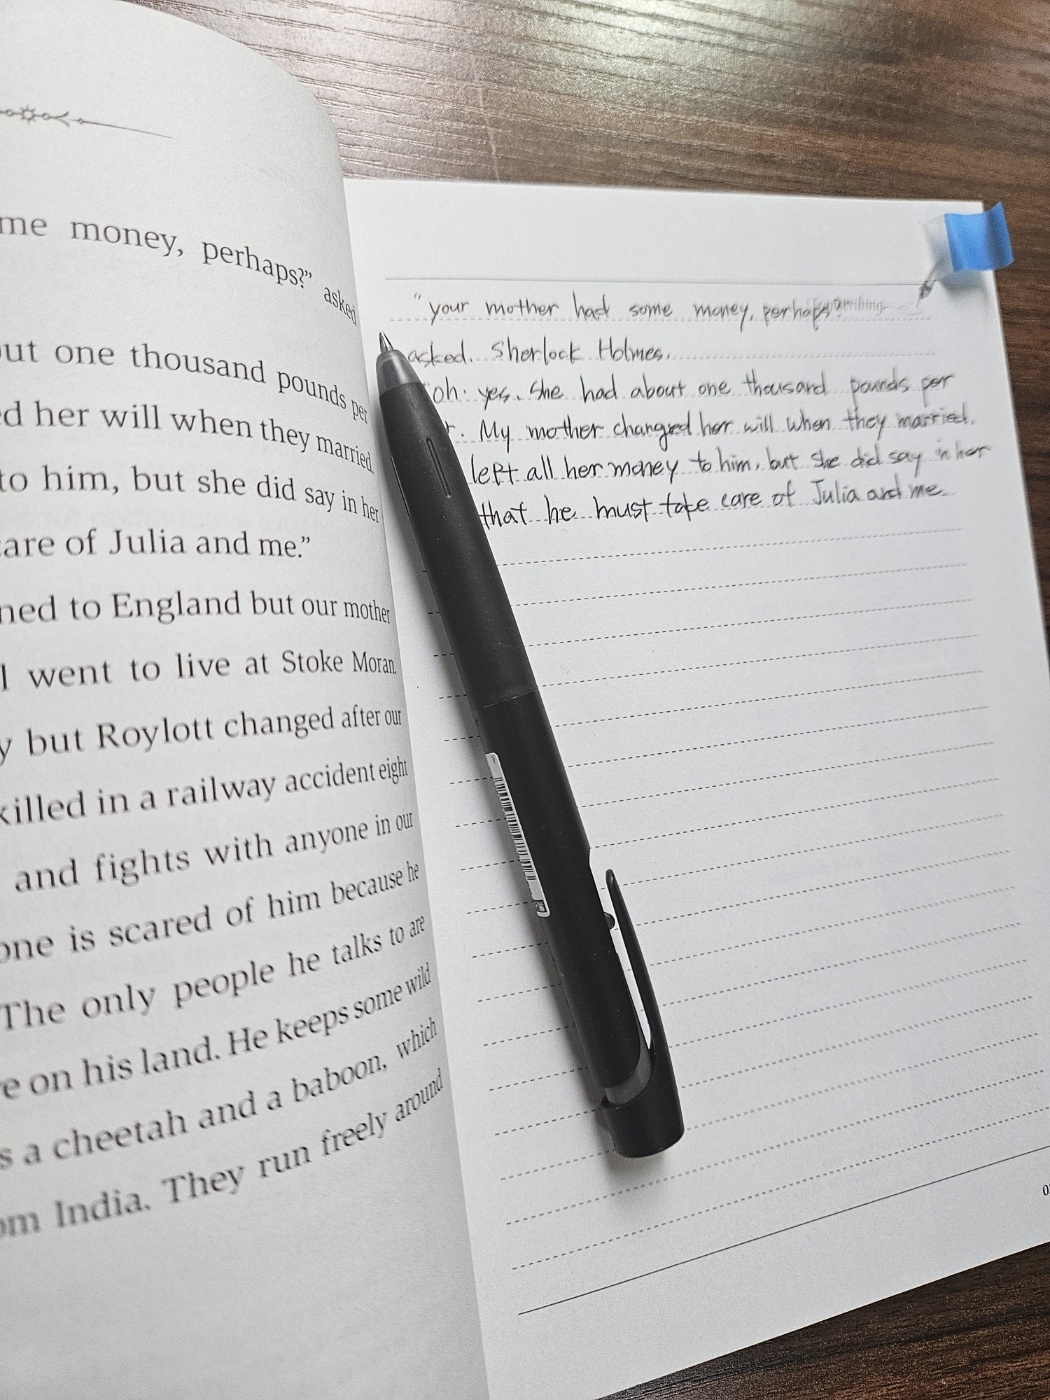 me money, perhaps?” asked
out one thousand pounds per
ed her will when they married.
to him, but she did say in her
care of Julia and me.”
ned to England but our mother
I went to live at Stoke Moran.
y but Roylott changed after our
killed in a railway accident eight
and fights with anyone in our
one is scared of him because he
The only people he talks to are
e on his land. He keeps some wild
s a cheetah and a baboon, which
om India. They run freely around
“your mother had some money, perhaps?
asked. Sherlock Holmes.
oh. yes. She had about one thousand pounds per
r. My mother changed her will when they married.
left all her money to him, but she did say in her
that he must take care of Julia and me.